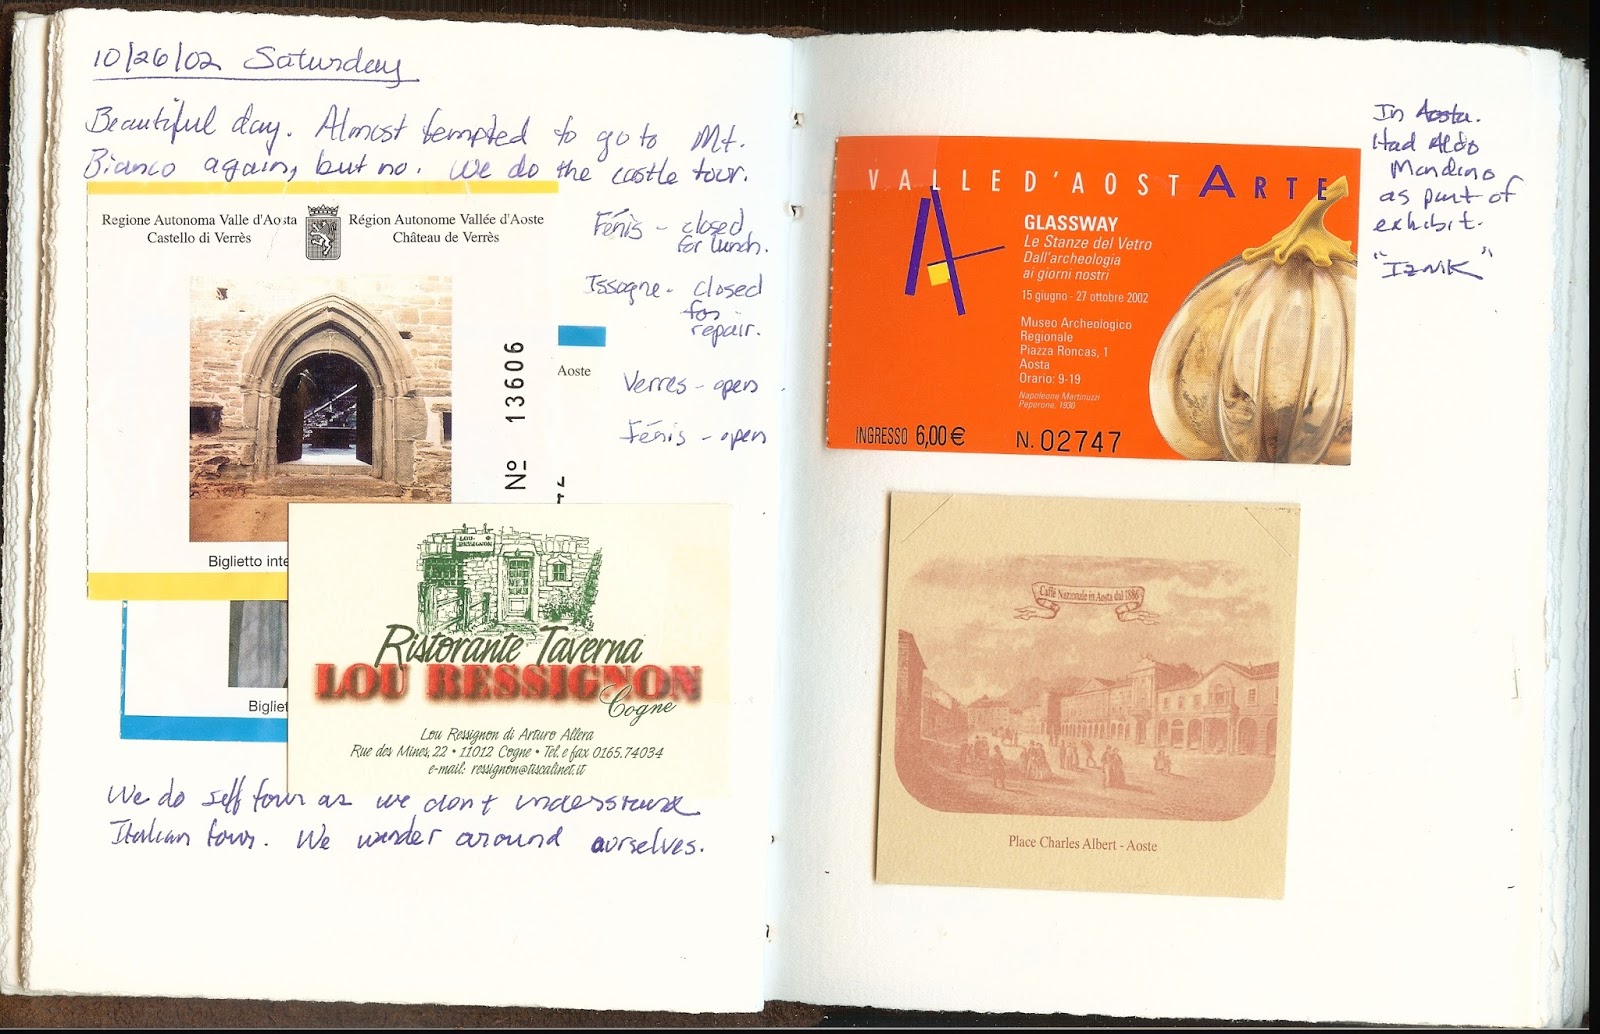 10/26/02 Saturday
Beautiful day. Almost tempted to go to Mt.
Bianco again, but no. We do the castle tour.
Regione Autonoma Valle d'Aosta
Castello di Verrès
Région Autonome Vallée d'Aoste
Château de Verrès
Nº 13606
Biglietto inte
Aoste
Bigliet
Fénis - closed
for lunch.
Issogne - closed
for
repair.
Verres - open
Fénis - open
LOU RESSIGNON
Ristorante Taverna
LOU RESSIGNON
Cogne
Lou Ressignon di Arturo Allera
Rue des Mines, 22 • 11012 Cogne • Tel. e fax 0165.74034
e-mail: ressignon@tiscalinet.it
We do self tour as we don't understand
Italian tour. We wander around ourselves.
VALLE D'AOSTA ARTE
GLASSWAY
Le Stanze del Vetro
Dall'archeologia
ai giorni nostri
15 giugno - 27 ottobre 2002
Museo Archeologico
Regionale
Piazza Roncas, 1
Aosta
Orario: 9-19
Napoleone Martinuzzi
Peperone, 1930
INGRESSO 6,00 €
N. 02747
In Aosta.
Had Aldo
Mondino
as part of
exhibit.
"IZNIK"
Caffè Nazionale in Aosta dal 1886
Place Charles Albert - Aoste